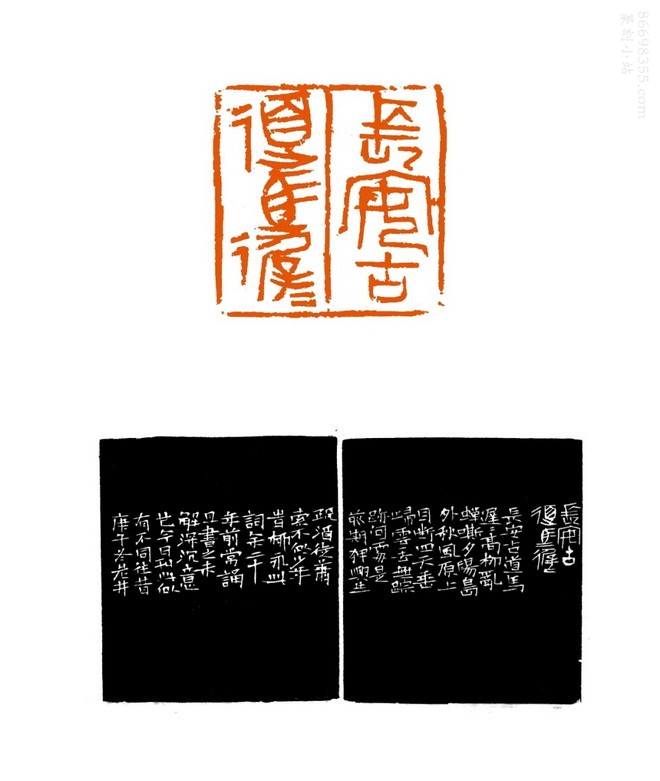 長安古
道馬遲
長安古道馬
遲〻高柳亂
蟬嘶夕陽島
外秋風原上
目斷四天垂
歸雲一去無蹤
跡何處是
前期狎興生
疏酒徒蕭
索不似少年
旹柳永此
詞年二十
年前常誦
且書之未
解深沉意
也今日刻此欲
有不同往昔
庚子冬若井
86698355.com
篆刻小站